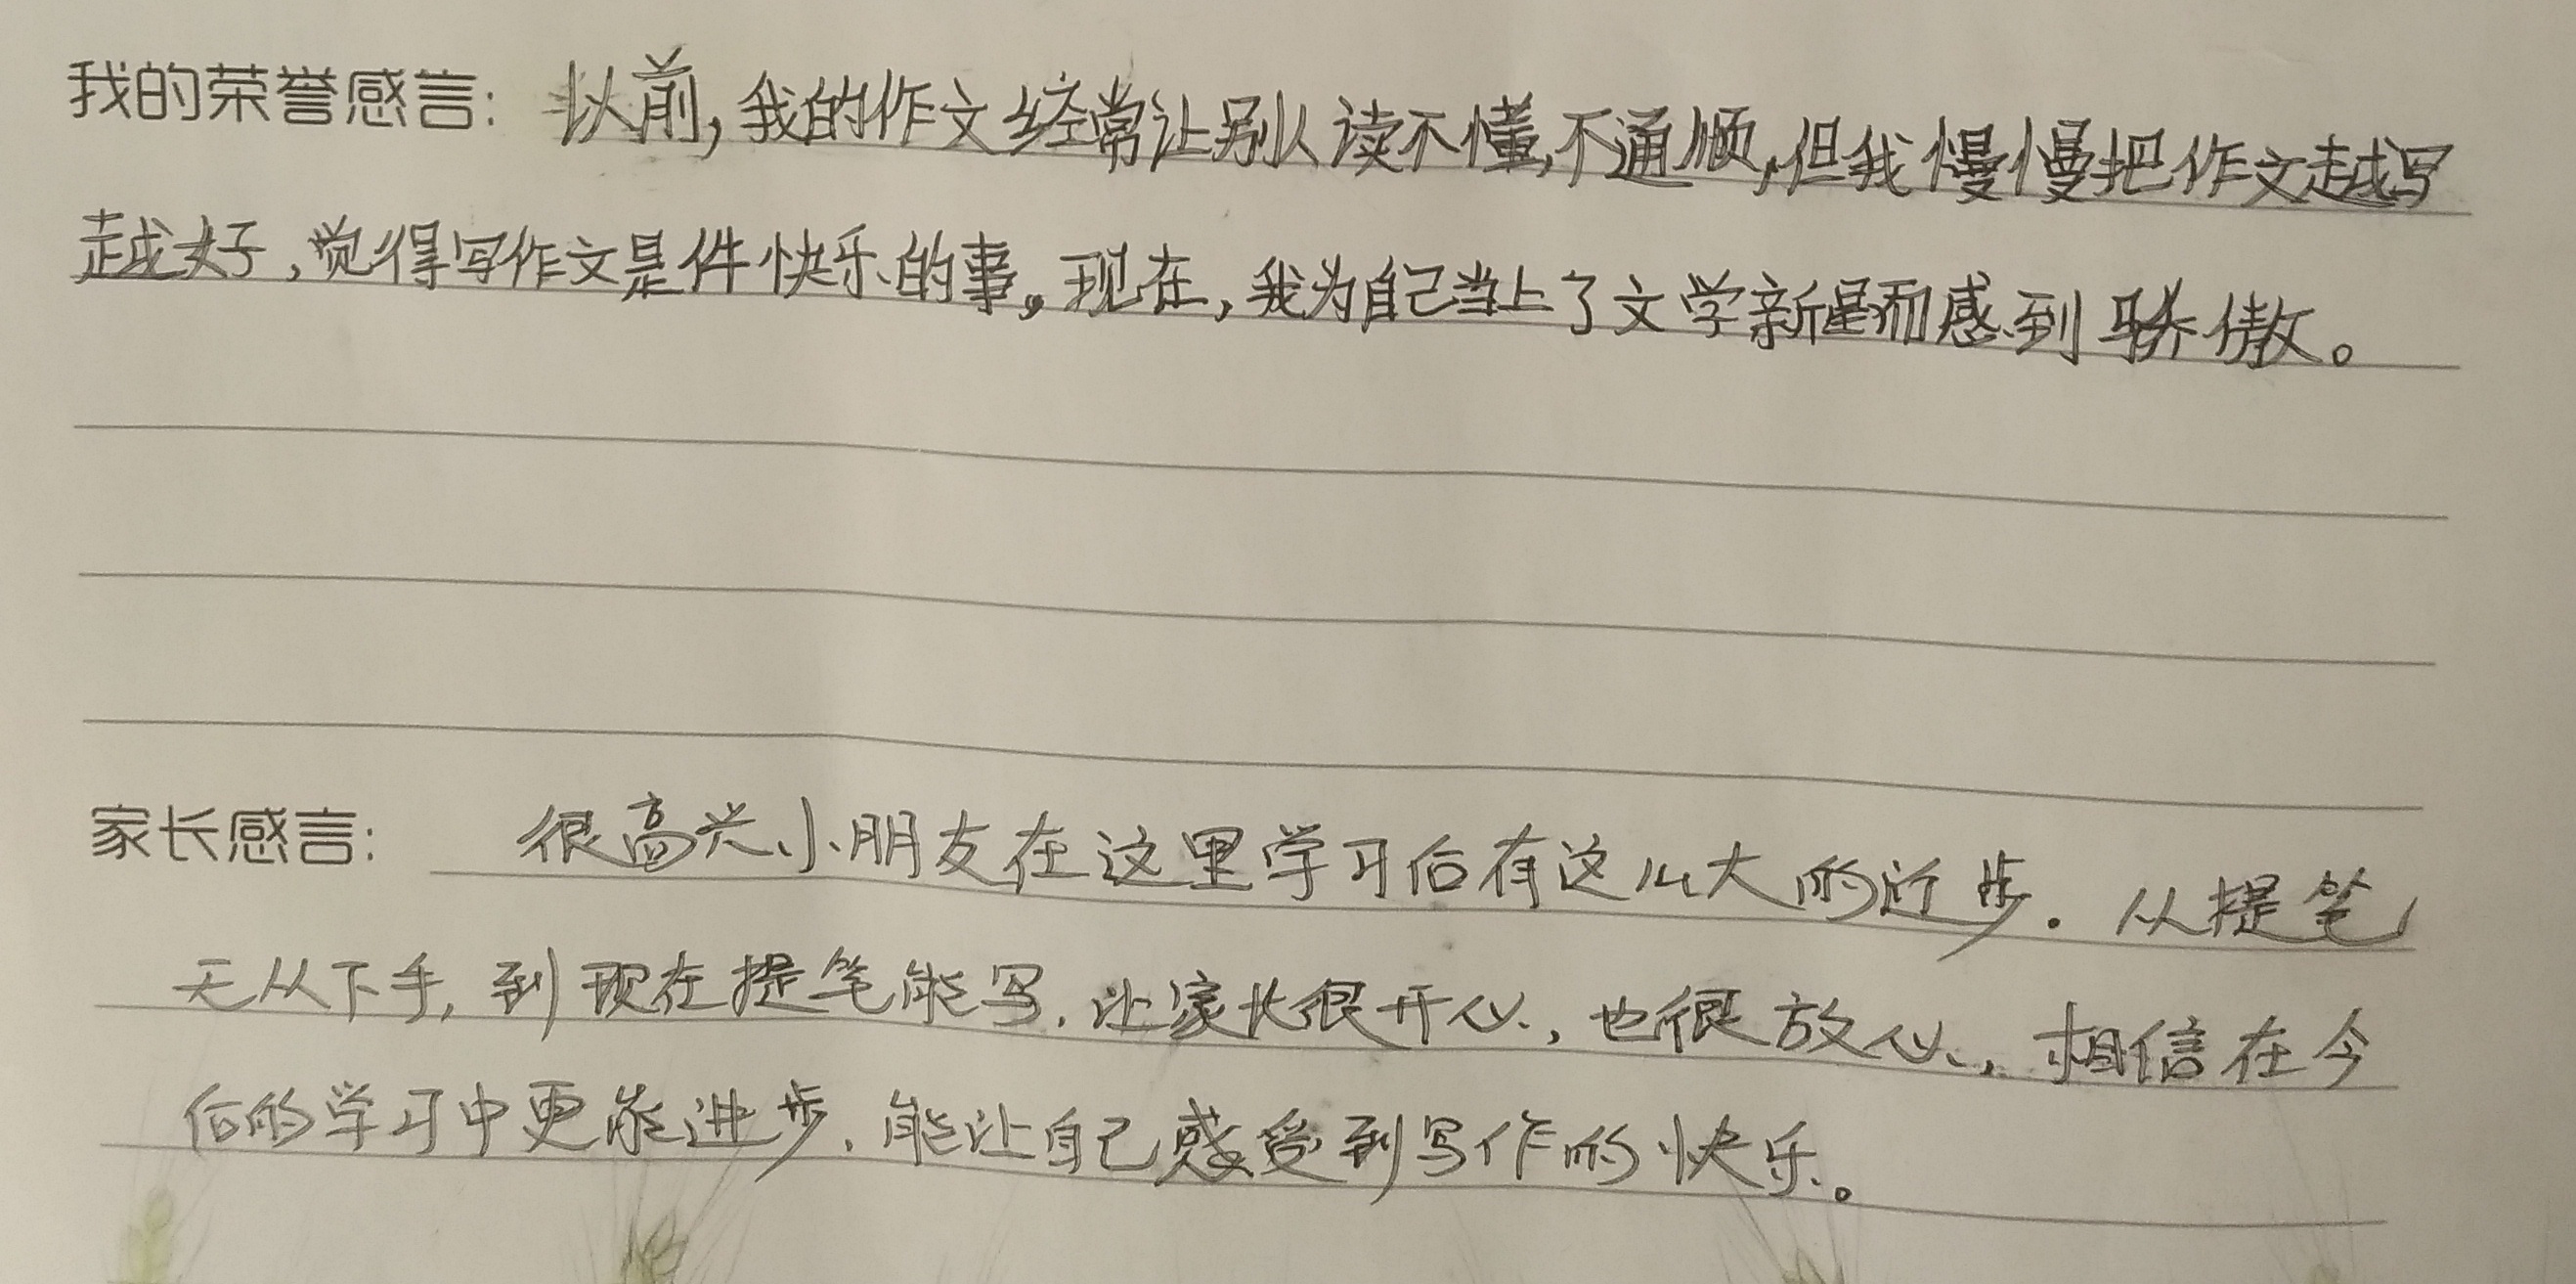 我的荣誉感言：以前，我的作文经常让别人读不懂，不通顺，但我慢慢把作文越写
越好，觉得写作文是件快乐的事。现在，我为自己当上了文学新星而感到骄傲。
家长感言：很高兴小朋友在这里学习后有这么大的进步. 从提笔
无从下手, 到现在提笔能写. 让家长很开心, 也很放心, 相信在今
后的学习中更能进步. 能让自己感受到写作的快乐。